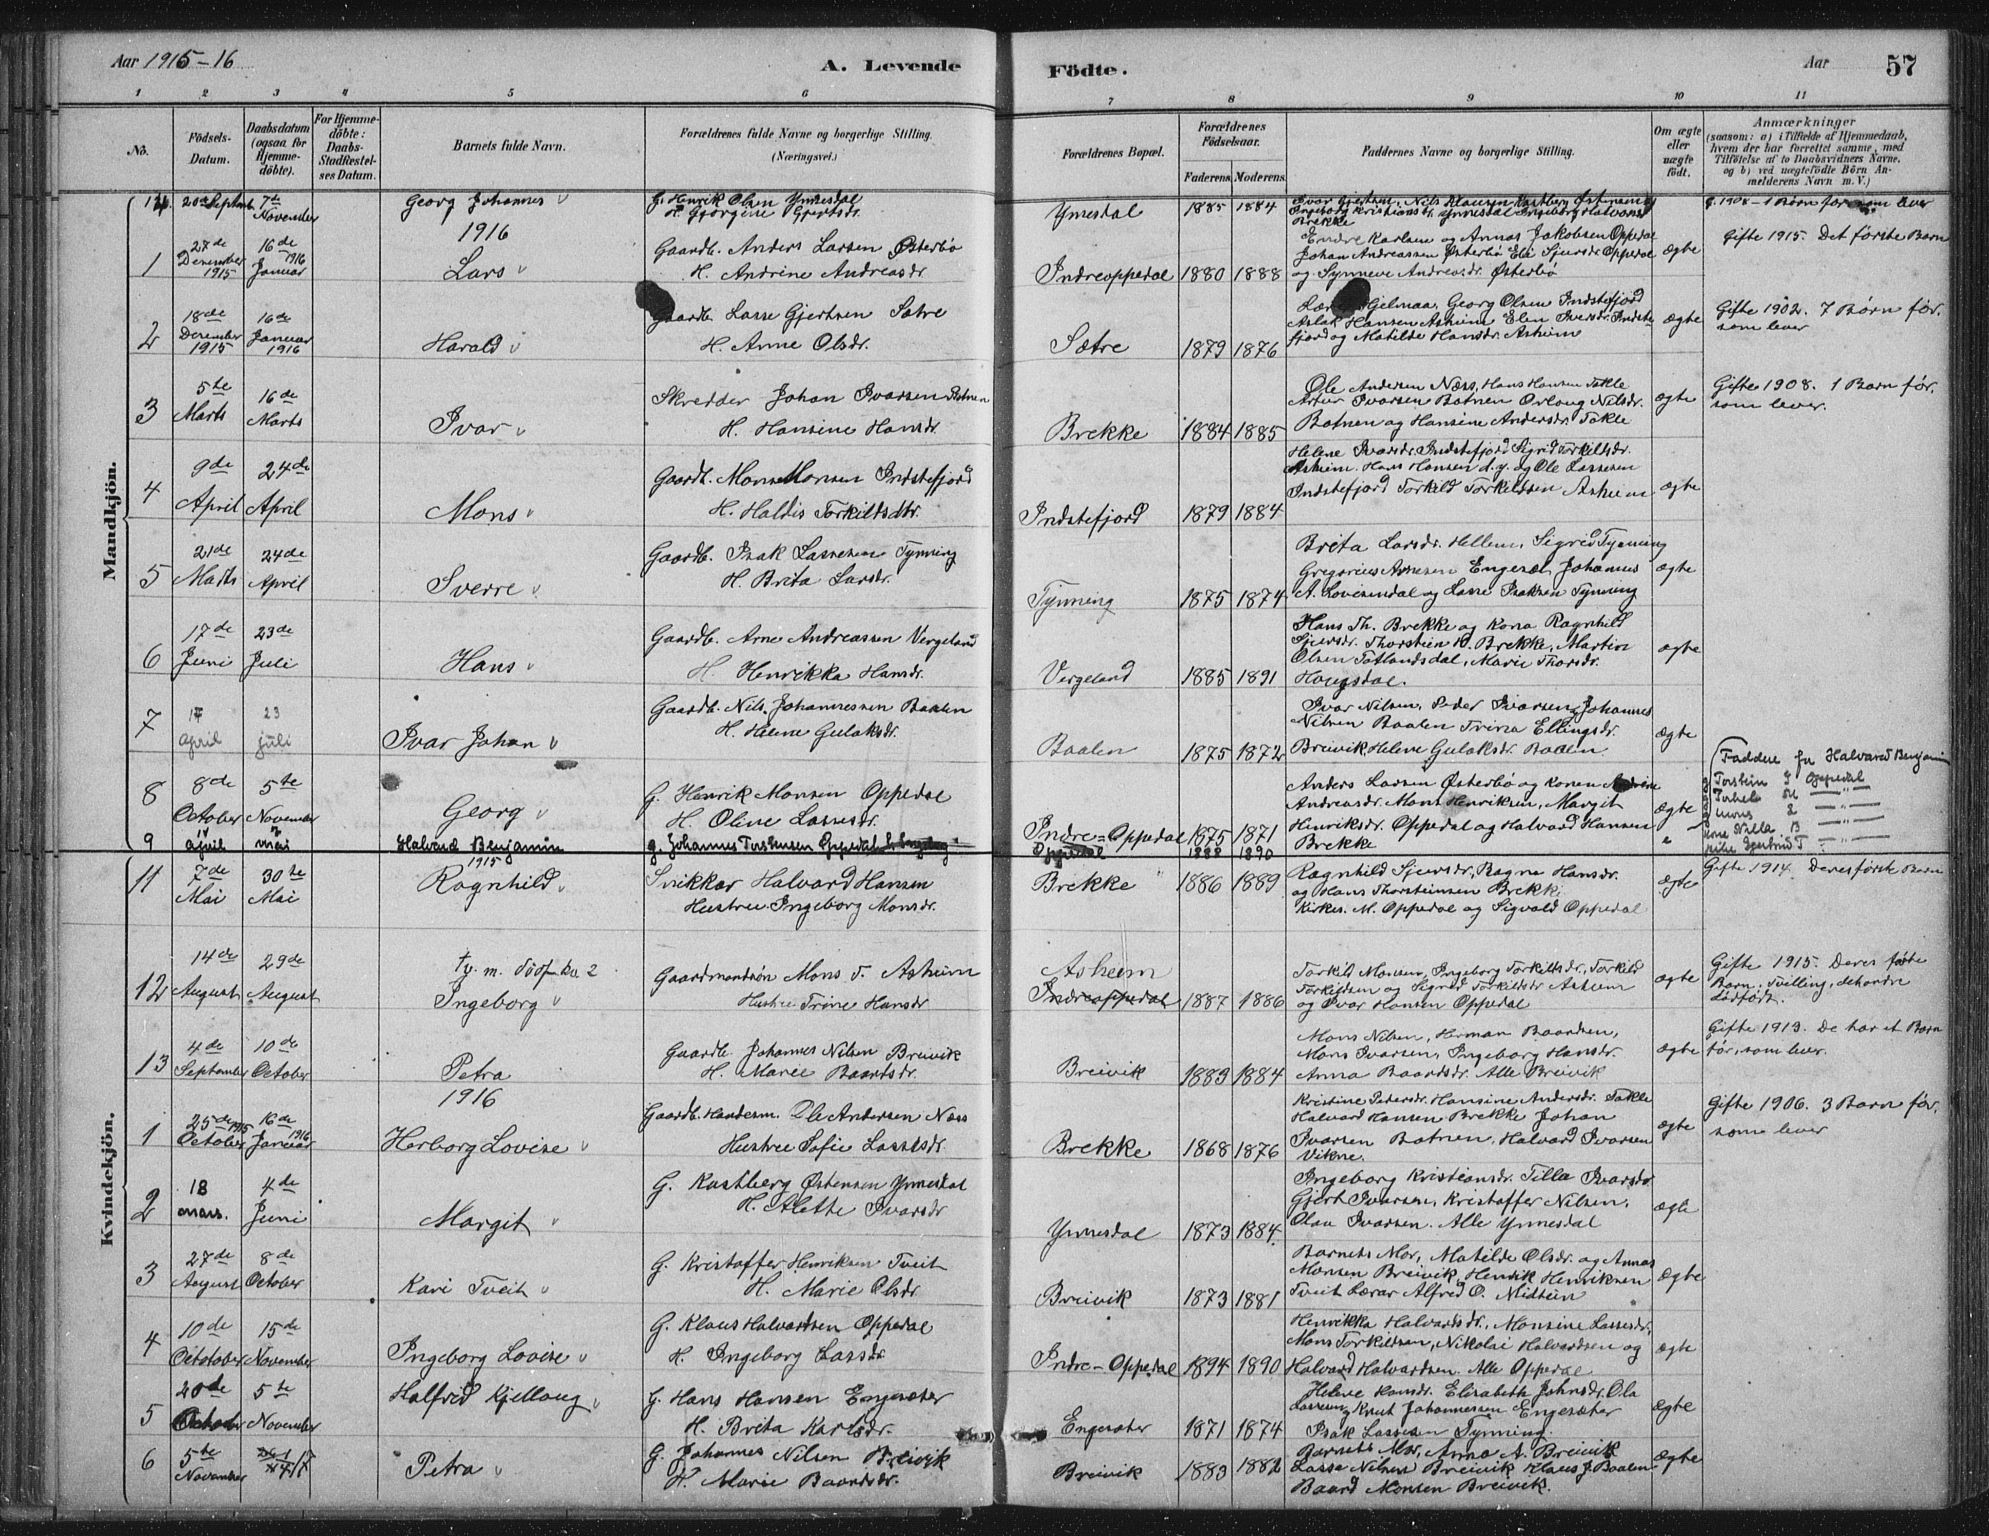 Aar 1915-16
A. Levende
Födte.
Aar
57
1 2 3 4 5 6 7 8 9 10 11
No.
Födsels-Datum.
Daabsdatum (ogsaa for Hjemmedöbte).
For Hjemmedöbte: Daabs-Stadfestelses Datum.
Barnets fulde Navn.
Forældrenes fulde Navne og borgerlige Stilling. (Næringsvei.)
Forældrenes Bopæl.
Forældrenes Födselsaar.
Faderens. Moderens.
Faddernes Navne og borgerlige Stilling.
Om ægte eller uægte födt.
Anmærkninger
(saasom: a) i Tilfælde af Hjemmedaab, hvem der har forrettet samme, med Tilföielse af to Daabsvidners Navne, og b) ved uægtefödte Börn Anmelderens Navn m. V.)
Mandkjön.
14 20de Septemb 7de November Georg Johannes
G. Henrik Olsen Ynnesdal
H. Gjorgine Gjertsdr.
Ynnesdal 1885 1884
Brekke
1916
1 27de December 1915 16de Januar 1916 Lars
Gaardb. Anders Larsen Østerbø
H. Andrine Andreasdr.
Indreoppedal 1880 1888
Endre Karlsen og Annas Jakobsen Oppedal
Johan Andreassen Østerbø Eli Sjursdr Oppedal
og Synneve Andreasdr. Østerbø
ægte
Gifte 1915. Det første Barn
2 18de December 1915 16de Januar 1916 Harald
Gaardb. Lasse Gjertsen Sætre
H. Anne Olsdr.
Sætre 1879 1876
Georg Olsen Indstefjord
Aslak Hansen Asheim Elen Iversdr. Indstefjord og Matilde Hansdr. Asheim
ægte
Gifte 1902. 7 Børn før.
som lever
3 5te Marts 16de Marts Ivar
Skredder Johan Ivarsen Botnen
H. Hansine Hansdr.
Brekke 1884 1885
Ole Andersen Næss, Hans Hansen Takle
Artur Ivarsen Botnen Orloug Nilsdr.
Botnen og Hansine Andersdr. Takle
ægte
Gifte 1908. 1 Barn før.
som lever.
4 9de April 24de April Mons
Gaardb. Mons Monsen Indstefjord
H. Haldis Torkildsdtr.
Indstefjord 1879 1884
Helene Ivarsdr. Indstefjord Sigrid Torkildsdr.
Asheim. Hans Hansen d.y. og Ole Lassesen
Indstefjord Torkild Torkildsen Asheim
ægte
5 21de Marts 24de April Sverre
Gaardb. Isak Lassesen Tynning
H. Brita Larsdr.
Tynning 1875 1874
Brita Larsdr. Hellem, Sigrid Tynning
Gregorius Arnesen Engesæt, Johannes
A. Lovisendal og Lasse Isaksen Tynning
ægte
6 17de Juni 23de Juli Hans
Gaardb. Arne Andreassen Vergeland
H. Henrikka Hansdr.
Vergeland 1885 1891
Hans Th. Brekke og Kona Ragnhild
Sjursdr. Thorstein H. Brekke, Martin
Olsen Totlandsdal, Marie Thorsdr.
Hougsdal.
ægte
7 17 april 23 juli Ivar Johan
Gaardb. Nils Johannessen Baalen
H. Helene Gulaksdr.
Baalen 1875 1872
Ivar Nilsen, Peder Ivarsen, Johannes
Nilsen Baalen Trina Ellingsdr.
Breivik Helene Gulaksdr. Baalen
ægte
8 8de October 5te November Georg
G. Henrik Monsen Oppedal
H. Oline Lassesdr.
Indre-Oppedal 1875 1871
Anders Larsen Østerbø og konen Andrine
Andreasdr. Mons Henriksen, Margit
Henriksdr. Oppedal og Halvard Hansen
Brekke
ægte
Faddere for Halvard Benjamin
Torstein Oppedal
9 14 april 7 mai Halvard Benjamin
g. Johannes Torstensen Oppedal
Oppedal 1888 1890
Kvindekjön.
1915
11 7de Mai 30te Mai Ragnhild
Snikkar Halvard Hansen
Hustru Ingeborg Monsdr.
Brekke 1886 1889
Ragnhild Sjursdr., Ragna Hansdr.
og Hans Thorsteinsen Brekke.
Kirkes. M. Oppedal og Sigvald Oppedal
ægte
Gifte 1914. Deres første Barn
12 14de August 29de August Ingeborg
Gaardmandsøn Mons T. Asheim
Hustru Trine Hansdr.
Asheim
Indreoppedal 1887 1886
Torkild Monsen, Ingeborg Torkildsdr., Torkild
Torkildsen og Sigrid Torkildsdr Asheim
og Ivar Hansen Oppedal
ægte
Gifte 1915. Deres første
Barn. Tvilling, de andre
dødfødt.
13 4de September 10de October Petra
Gaardb. Johannes Nilsen Breivik
H. Marie Baardsdr.
Breivik 1883 1884
Mons Nilsen, Herman Baardsen,
Mons Ivarsen, Ingeborg Hansdr.
Anna Baardsdr. Alle Breivik
ægte
Gifte 1913. De har et Barn
før, som lever.
1916
1 25de October 1915 16de Januar 1916 Herborg Lovise
Gaardb. Handesm. Ole Andersen Næss
Hustru Sofie Lassesdr.
Brekke 1868 1876
Kristine Pedersdr. Hansine Andersdr. Takle
Halvard Hansen Brekke Johan
Ivarsen Botnen, Halvard Ivarsen
Vikne.
ægte
Gifte 1906. 3 Barn før.
some lever
2 18 mars. 4de Juni Margit
G. Kastberg Østensen Ynnesdal
H. Alette Ivarsdr
Ynnesdal 1873 1884.
Ingeborg Kristiansdr. Tilla Ivarsdr
Gjert Ivarsen, Kristoffer Nilsen,
Olav Ivarsen. Alle Ynnesdal
ægte
3 27de August 8de October Kari Tveit
G. Kristoffer Henriksen Tveit
H. Marie Olsdr.
Breivik 1873 1881
Barnets Mor, Matilde Olsdr. og Annas
Monsen Breivik, Henrik Henriksen
Tveit Lærar Alfred O. Midtun
ægte
4 10de Octotober 15de November Ingeborg Lovise
G. Klaus Halvardsen Oppedal
H. Ingeborg Larsdr
Indre-Oppedal 1894 1890
Henrikka Halvardsdr., Monsine Lassesdr.,
Mons Torkildsen, Nikolai Halvardsen og
Halvard Halvardsen. Alle Oppedal
ægte
5 20de October 5te November Halfrid Kjellaug
G. Hans Hansen Engesæter
H. Brita Karlsdr.
Engesæter 1871 1874
Helene Hansdr. Elisabeth Johnsdr. Ola
Lassesen, Knut Johannessen Engesæter
Isak Lassesen Tynning.
ægte
6 5te November Petra
G. Johannes Nilsen Breivik
H. Marie Baardsdr.
Breivik 1883 1882
Barnets Mor, Anna A. Breivik
Lasse Nilsen Breivik Klaus J Baalen
Baard Monsen Breivik.
ægte